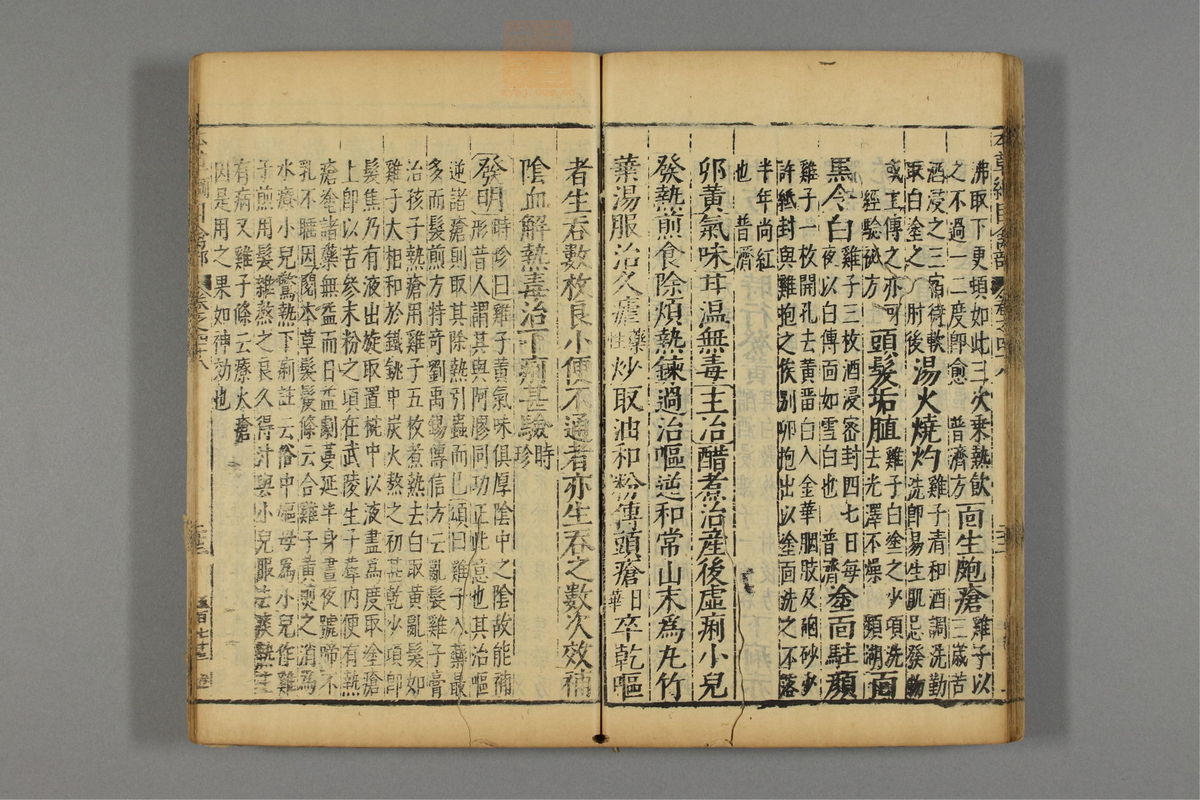 沸取下更頓如此三次乘熱飲之不過一二度即愈 普濟方 面生皰瘡 雞子以三歲苦
酒浸之三宿待軟取白塗之 肘後 湯火燒灼 雞子清和酒調洗勤洗即易生肌忌發物
或生傅之亦可 經驗祕方 頭髮垢䐈 雞子白塗之少頃洗去光澤不燥 瀕湖 面
黑令白 雞子三枚酒浸密封四七日每夜以白傅面如雪白也 普濟 塗面駐顏
雞子一枚開孔去黃畱白入金華胭肢及硇砂少許紙封與雞抱之俟別卵抱出以塗面洗之不落
半年尚紅也 普濟
卵黃氣味甘溫無毒主治醋煮治產後虛痢小兒
發熱煎食除煩熱鍊過治嘔逆和常山末為丸竹
葉湯服治久瘧藥性炒取油和粉傅頭瘡日華卒乾嘔
者生吞數枚良小便不通者亦生吞之數次效補
陰血解熱毒治下痢甚驗時珍
發明 時珍曰雞子黃氣味俱厚陰中之陰故能補形昔人謂其與阿膠同功正此意也其治嘔
逆諸瘡則取其除熱引蟲而已頌曰雞子入藥最多而髮煎方特奇劉禹錫傳信方云亂髮雞子膏
治孩子熱瘡用雞子五枚煮熟去白取黃亂髮如雞子大相和於鐵銚中炭火熬之初甚乾少頃即
髮焦乃有液出旋取置椀中以液盡為度取塗瘡上即以苦參末粉之頃在武陵生子蓐內便有熱
瘡塗諸藥無益而日益劇蔓延半身晝夜號啼不乳不睡因閱本草髮髲條云合雞子黃煎之消為
水療小兒驚熱下痢註云俗中嫗母為小兒作雞子煎用髮雜熬之良久得汁與小兒服去痰熱主
百病又雞子條云療火瘡因是用之果如神効也
本草綱目禽部 卷之四十八